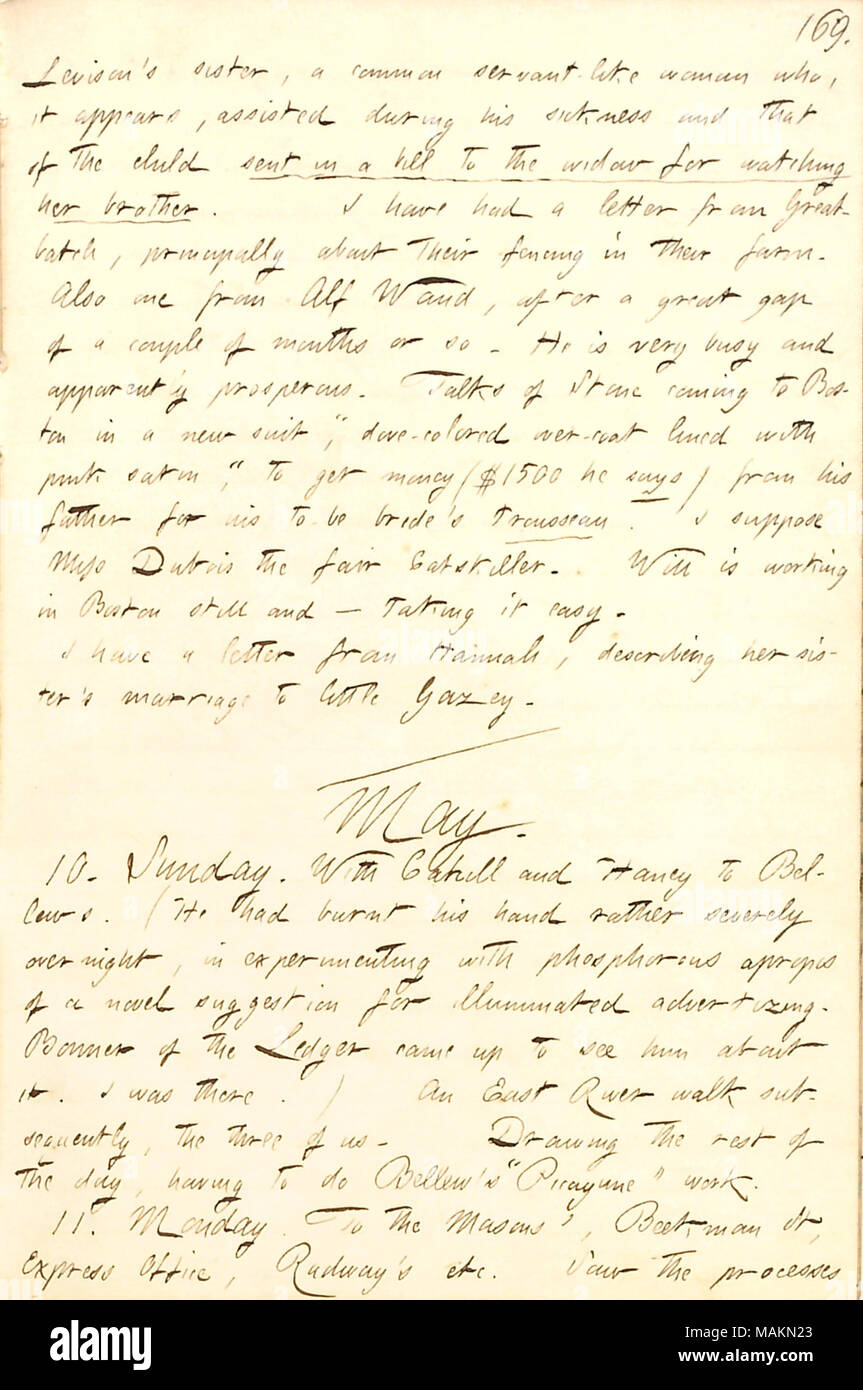 169.
Levison's sister, a common servant-like woman who,
it appears, assisted during his sickness and that
of the child sent in a bill to the widow for watching
her brother. I have had a letter from Great-
batch, principally about their fencing in their farm.
Also one from Alf Waud, after a great gap
of a couple of months or so. He is very busy and
apparently prosperous. Talks of Stone coming to Bos-
ton in a new suit, "dove-colored over-coat lined with
pink satin", to get money ($1500 he says) from his
father for his to-be bride's trousseau. I suppose
Miss Dubois the fair Catskiller. Will is working
in Boston still and — taking it easy.
I have a letter from Hannah, describing her sis-
ter's marriage to little Gazey.
May.
10. Sunday. With Cahill and Haney to Bel-
lews. (He had burnt his hand rather severely
over night, in experimenting with phosphorous apropos
of a novel suggestion for illuminated advertizing.
Bonner of the Ledger came up to see him about
it. I was there.) An East River walk sub-
sequently, the three of us. Drawing the rest of
the day, having to do Bellew's "Picayune" work.
11. Monday. To the Masons', Beekman St,
Express Office, Radway's etc. Saw the processes
alamy
Image ID: MAKN23
www.alamy.com